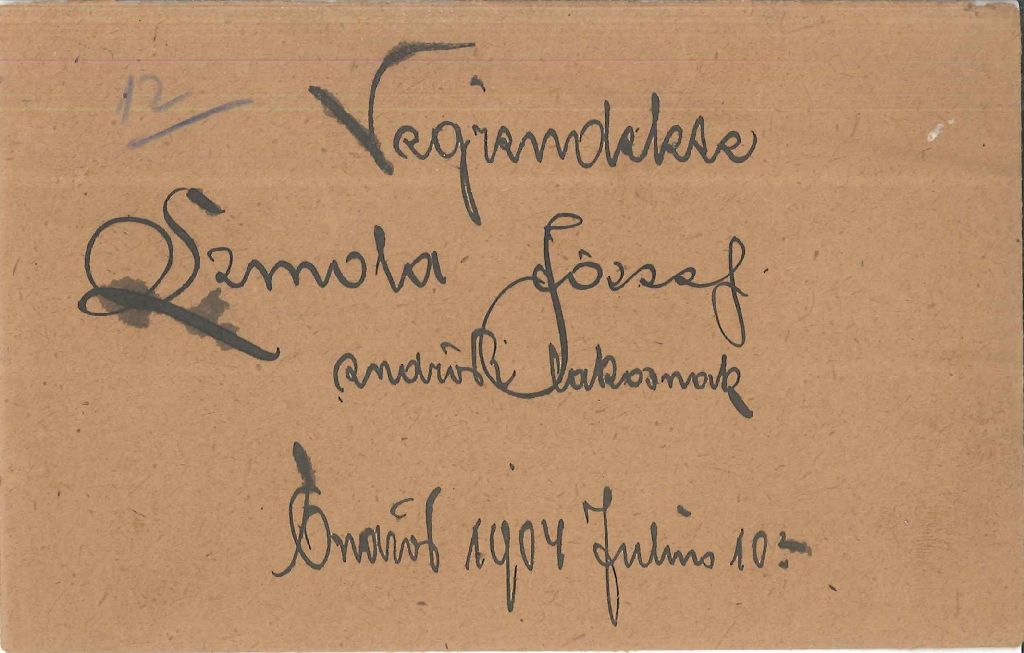 12
Vegrendelete
Szmola József
endrődi lakosnak
Endrőd 1904 Julius 10